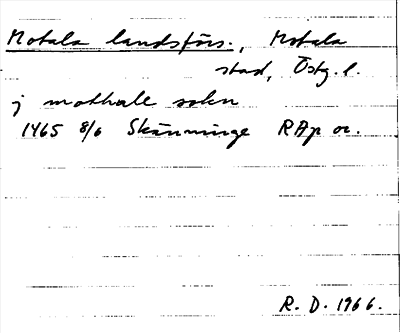 Motala landsförs., Motala
stad, Östg. l.
j mothale sokn
1465 8/6 Skänninge RAp or.
R. D. 1966.